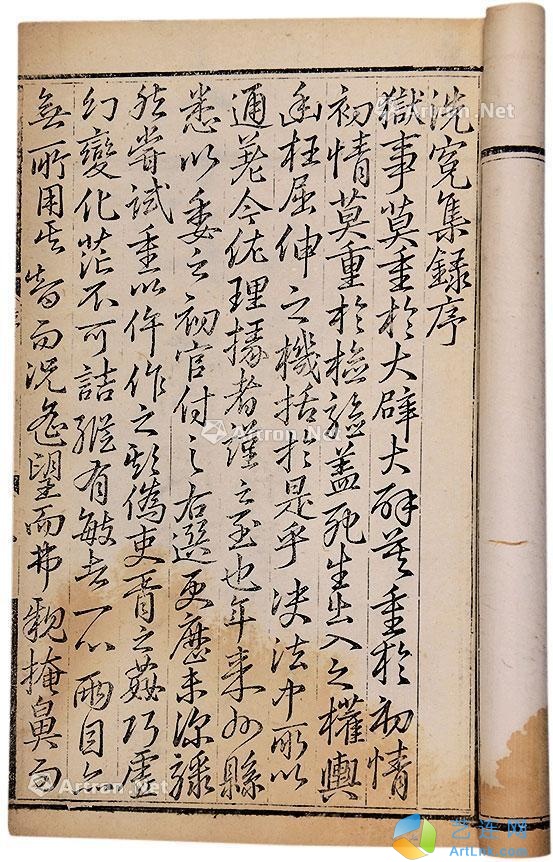 洗冤集録序
獄事莫重於大辟大辟莫重於初情
初情莫重於檢驗蓋死生出入之權輿
幽枉屈伸之機括於是乎決法中所以
通差今佐理掾者謹之至也年来州縣
悉以委之初官付之右選更歷未深驟
然嘗試重以仵作之欺僞吏胥之姦巧虛
幻變化茫不可詰縱有敏者一心兩目亦
無所用其智而況遙望而弗親掩鼻而
Artron.Net
Artron.Net
Artron.Net
Artron.Net